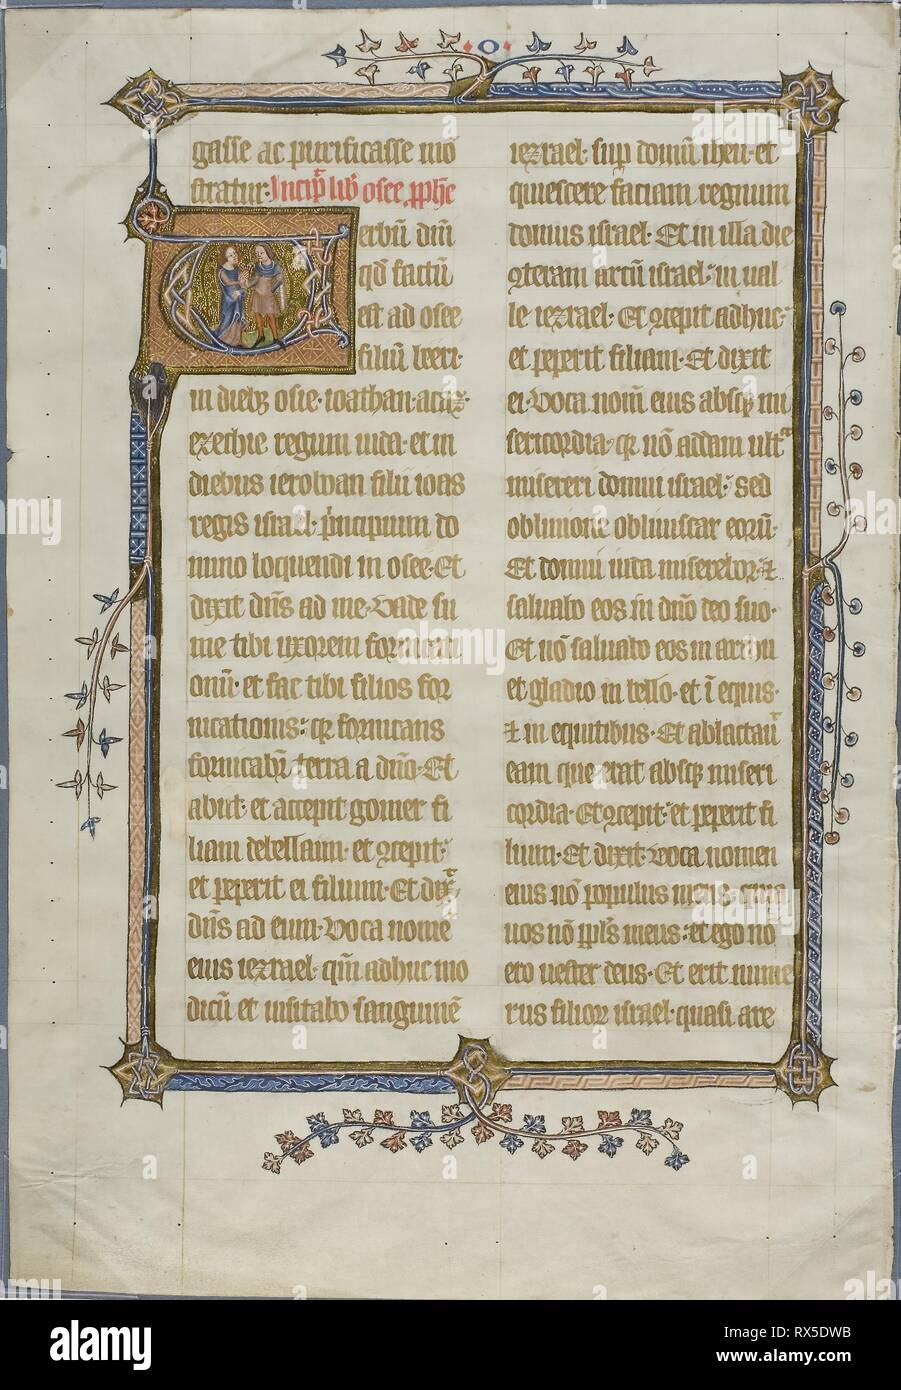 o
gasse ac purificasse mō
stratur· Incip̄ lib̄ osee ꝓph̄e
Verbū dn̄i
qd̄ factū
est ad osee
filiū beeri·
in dieb; osie· ioathan· acaz·
ezechie regum iuda· et in
diebus ieroboan filii ioas
regis israel· p̄ncipium do
mino loquendi in osee· Et
dixit dn̄s ad me· Vade su
me tibi uxorem fornicati
onū· et fac tibi filios for
nicationis: qꝛ fornicans
fornicabr̄ terra a dn̄o· Et
abiit· et accepit gomer fi
liam debelaim· et ꝯcepit:
et peperit ei filium· Et dix̄
dn̄s ad eum· Voca nomē
eius iezrael· qm̄ adhuc mo
dicū et uisitabo sanguinē
iezrael· sup domū iheu· et
quiescere faciam regnum
domus israel· Et in illa die
ꝯteram arcū israel: in ual
le iezrael· Et ꝯcepit adhuc:
et peperit filiam· Et dixit
ei· Voca nom̄ eius absqꝫ mi
sericordia· qꝛ nō addam ultᵃ
misereri domui israel: sed
obliuione obliuiscar eorū·
Et domui iuda miserebor· ⁊
saluabo eos in dn̄o deo suo·
Et nō saluabo eos in archu
et gladio in bello· et ī equis·
⁊ in equitibus· Et ablactau̅
eam que erat absqꝫ miseri
cordia· Et ꝯcepit: et peperit fi
lium· Et dixit· Voca nomen
eius nō populus meus· quia
uos nō pl̄s meus: et ego nō
ero uester deus· Et erit nume
rus filioꝝ israel· quasi are
alamy
Image ID: RX5DWB
www.alamy.com